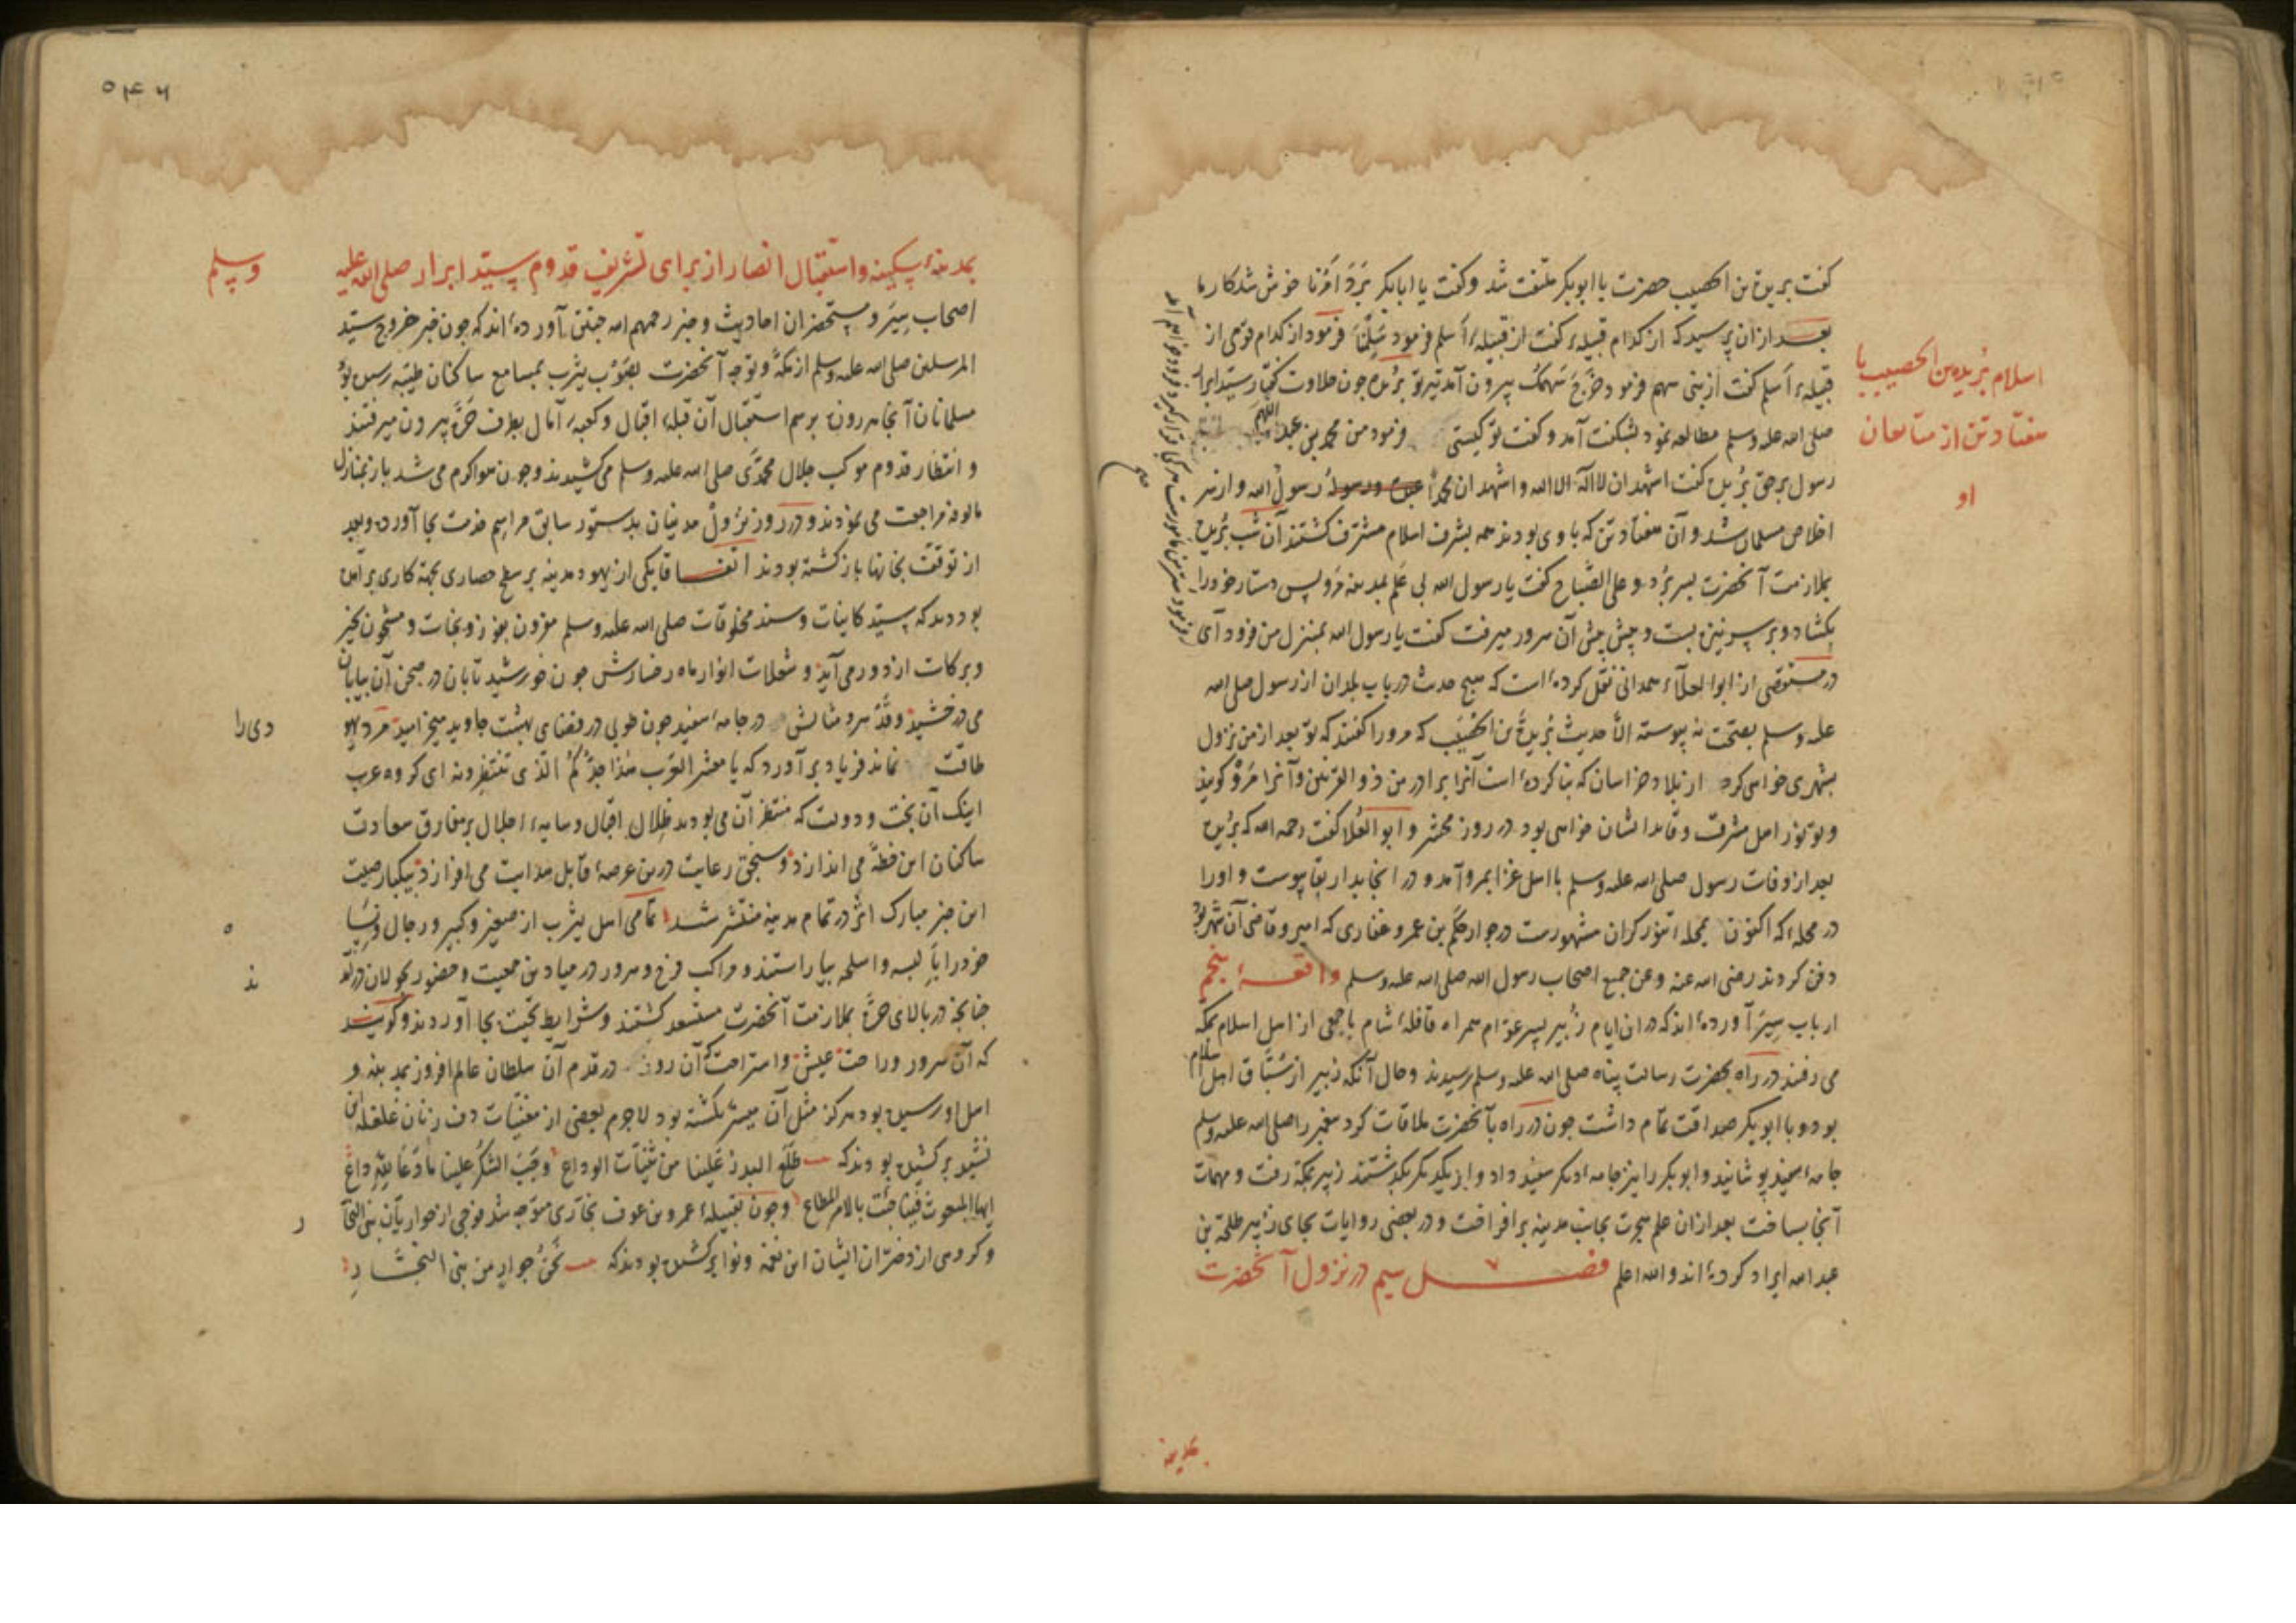 گفت بریدة بن الحصیب حضرت با ابوبکر ملتفت شد و گفت یا ابابکر بَرَدَ اَمرُنا خوش شد کار ما
بعد ازان پرسید که از کدام قبیلهٔ گفت از قبیلهٔ اَسلم فرمود سَلِمنا فرمود از کدام قومی از
قبیلهٔ اَسلم گفت از بنی سهم فرمود خَرَجَ سَهمُک بیرون آمد تیر تو بُریده چون حلاوت گفتار سیّد ابرار
صلی الله علیه وسلم مطالعه نمود بشگفت آمد و گفت تو کیستی فرمود من محمد بن عبد اللهم
رسول برحق بُریده گفت اشهد ان لا اله الا الله و اشهد ان محمدًا عبده ورسوله رسول الله و از سر
اخلاص مسلمان شد و آن هفتاد تن که با وی بودند همه بشرف اسلام مشرف گشتند آن شب بُریده
بملازمت آنحضرت بسر بُرد و علی الصّباح گفت یا رسول الله بی عَلَم بمدینه مَرو پس دستار خود را
بگشاد و بر سر نیزه بست و پیش پیش آن سرور میرفت گفت یا رسول الله بمنزل من فرود آی
در مستقصی از ابو العلاء همدانی نقل کرده است که هیچ حدیث در باب بلدان از رسول صلی الله
علیه وسلم بصحّت نه پیوسته الّا حدیث بُریدة بن الحُصَیب که مرو را گفتند که تو بعد از من نزول
بشهری خواهی کرد از بلاد خراسان که بنا کرده است آنرا برادر من ذو القرنین و آنرا مَرو گویند
و تو نور اهل مشرق و قاید ایشان خواهی بود در روز محشر و ابو العُلا گفت رحمه الله که بُریده
بعد از وفات رسول صلی الله علیه وسلم با اهل غزا بمرو آمد و در انجا بدار بقا پیوست و او را
در محلهٔ که اکنون بمحلهٔ تنور گران مشهورست در جوار حَکم بن عمرو غفاری که امیر و قاضی آن شهر بود
دفن کردند رضی الله عنه و عن جمیع اصحاب رسول الله صلی الله علیه وسلم واقعهٔ پنجم
ارباب سِیَر آورده اند که در ان ایام زُبیر پسر عوّام همراه قافلهٔ شام با جمعی از اهل اسلام بمکّه
می رفتند در راه بحضرت رسالت پناه صلی الله علیه وسلم رسیدند و حال آنکه زبیر از سُبّاق اهل اسلام
بود و با ابوبکر صداقت تمام داشت چون در راه با آنحضرت ملاقات کرد پیغمبر را صلی الله علیه وسلم
جامهٔ سفید پوشانید و ابوبکر را نیز جامه دیگر سفید داد و از یکدیگر بگذشتند زبیر بمکّه رفت و مهمات
آنجا بساخت بعد ازان علم هجرت بجانب مدینه برافراخت و در بعضی روایات بجای زُبیر طلحة بن
عبد الله ایراد کرده اند و الله اعلم فصل سیم در نزول آنحضرت
اسلام بُریده بن الحصیب با
هفتاد تن از متابعان
او
بمدینه
۵۴۶
بمدینهٔ سکینه و استقبال انصار از برای تشریف قدوم سیّد ابرار صلی الله علیه
وسلم
اصحاب سِیَر و مستحضران احادیث و خبر رحمهم الله چنین آورده اند که چون خبر خروج سیّد
المرسلین صلی الله علیه وسلم از مکّه و توجّه آنحضرت بصَوب یثرب بمسامع ساکنان طیّبه رسیده بود
مسلمانان آنجا هر روزه برسم استقبال آن قبلهٔ اقبال و کعبهٔ آمال بطرف حَرّه بیرون میرفتند
و انتظار قدوم موکب جلال محمّدی صلی الله علیه وسلم می کشیدند و چون هوا گرم می شد باز بمنازل
مالوفه مراجعت می نمودند و در روز نزول مدنیان بدستور سابق مراسم خدمت بجا آورده و بعد
از توقف بخانها باز گشته بودند اتفاقا یکی از یهود مدینه بر سطح حصاری بجهة کاری برآمده
بود دید که سیّد کاینات و سند مخلوقات صلی الله علیه وسلم مقرون بفوز و نجات و مشحون بخیر
و برکات از دور می آید و شعلات انوار ماه رخسارش چون خورشید تابان در صحن آن بیابان
می درخشید و قدّ سرو مثالش در جامهٔ سفید چون طوبی در فضای بهشت جاوید میخرامید مرد یهو
دی را
طاقت نماند فریاد برآورد که یا معشر العرب هذا جدّکم الذی تنتظرونه ای گروه عرب
اینک آن بخت و دولت که منتظر آن می بودید ظلال اقبال و سایهٔ اجلال بر مفارق سعادت
ساکنان این خطّه می اندازد و سنجق رعایت درین عرصهٔ قابل هدایت می افرازد بیکبار صیت
این خبر مبارک اثر در تمام مدینه منتشر شد تمامی اهل یثرب از صغیر و کبیر و رجال و نسا
خود را بالبسه و اسلحه بیاراستند و مراکب فرح و سرور در میادین جمعیت و حضور بجولان در آورد
ند
چنانچه در بالای حَرّه بملازمت آنحضرت مستسعد گشتند و شرایط تحیت بجا آوردند و گویند
که آن سرور و راحت عیش و استراحت که آن روز در قدم آن سلطان عالم افروز بمدینه و
اهل او رسیده بود هرگز مثل آن میسر نگشته بود لاجرم بعضی از مغنّیات دف زنان غلغلهٔ این
نشید برکشیده بودند که طلع البدر علینا من ثنیات الوداع وجب الشکر علینا ما دعا لله داع
ایها المبعوث فینا جئت بالامر المطاع و چون بقبیلهٔ عمرو بن عوف نجاری متوجه شد فوجی از جواریان بنی النجا
ر
و گروهی از دختران ایشان این نغمه و نوا برکشیده بودند که نحن جوار من بنی النجار